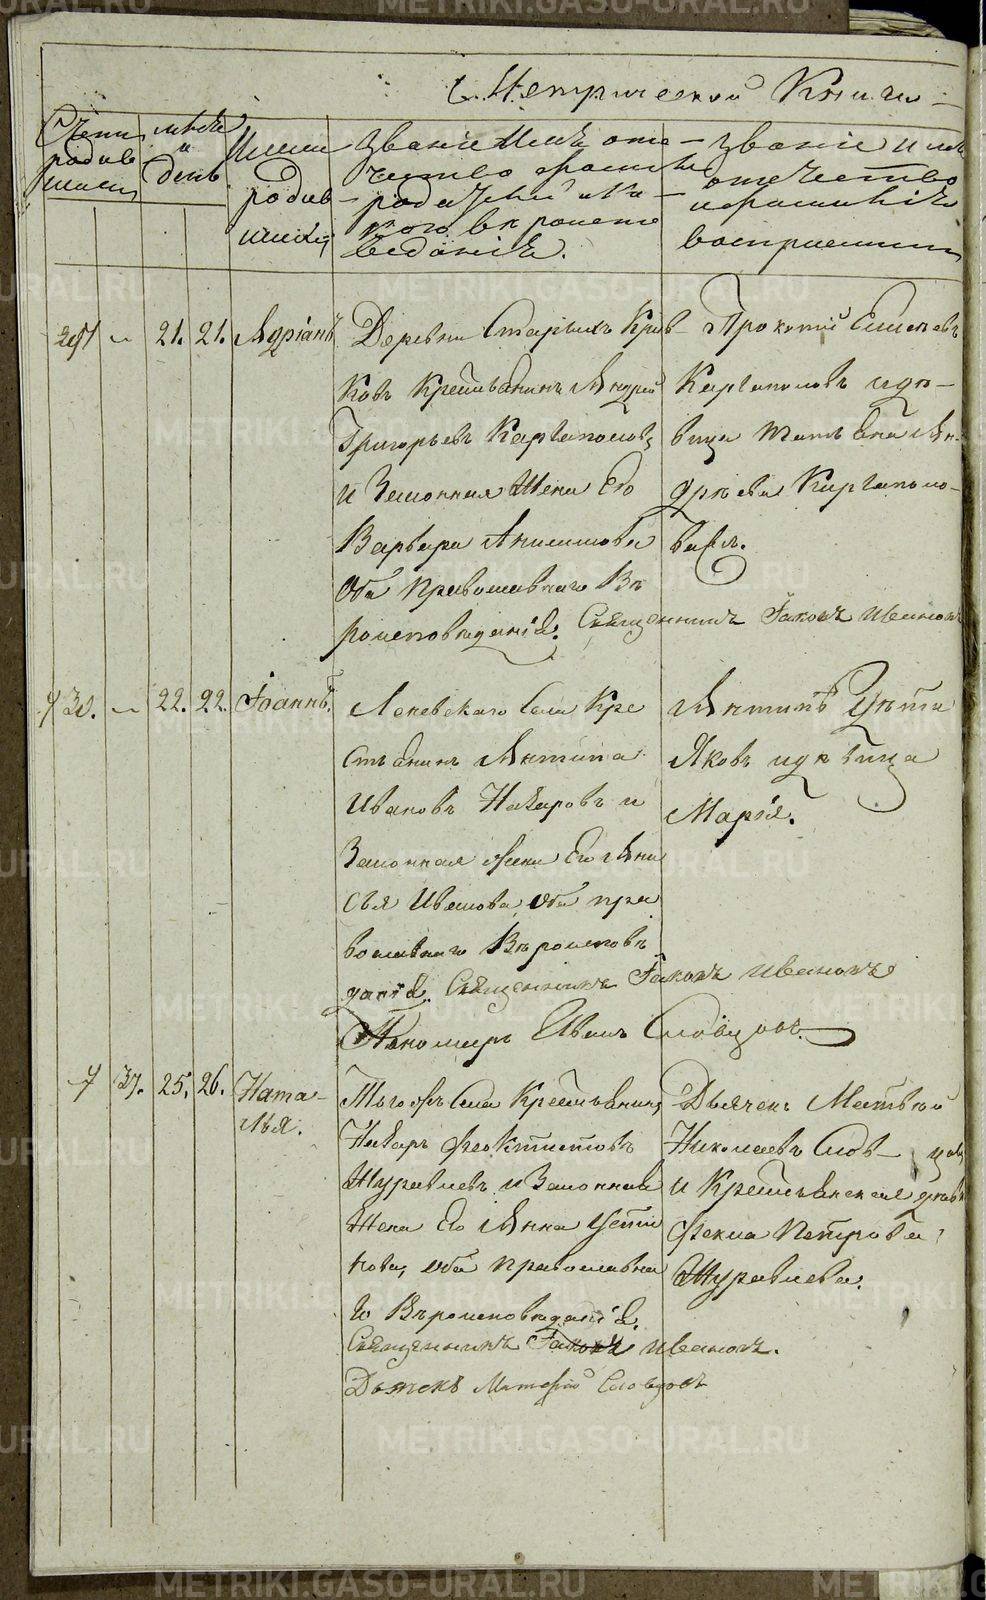 Метрической Книги
Счетъ родив шихся
мѣсяцъ и день
Имена родив шихся
Званіе Имя оте чество фамилія роди телей и ка кого вѣроиспо вѣданія.
Званіе и имя отечество и фамилія воспріемник
21. 21. Адріанъ
Деревни Старыхъ Крив
ковъ Крестьянинъ Андрей
Григорьевъ Каргаполовъ
и Законная Жена Его
Варвара Анисимова
Оба Православнаго Вѣ
роисповѣданія. Священникъ Іаковъ Ивановъ
Прокопій
Каргаполовъ и дѣ-
вица Татьяна Ан-
дреева Каргаполо-
выхъ.
30. 22. 22. Іоаннъ.
Леневскаго Села Кре
стьянинъ Антипа
Ивановъ Макаровъ и
Законная Жена Его Ани
сья Иванова, Оба пра
вославнаго Вѣроисповѣ
данія. Священникъ Іаковъ Ивановъ
Пономарь Иванъ Словцовъ.
Антипъ
Яковъ и дѣвица
Марія.
7 31. 25. 26. Ната-
лья.
Того жъ Села Крестьянинъ
Макаръ Феоктистовъ
Журавлевъ и Законная
Жена Его Анна
нова, оба православна
го Вѣроисповѣданія.
Священникъ Іаковъ Ивановъ.
Дьячекъ Матфей Словцовъ
Дьячекъ Матвѣй
Николаевъ Слов- цовъ
и Крестьянская дѣвка
Фекла Петрова
Журавлева.
METRIKI.GASO-URAL.RU